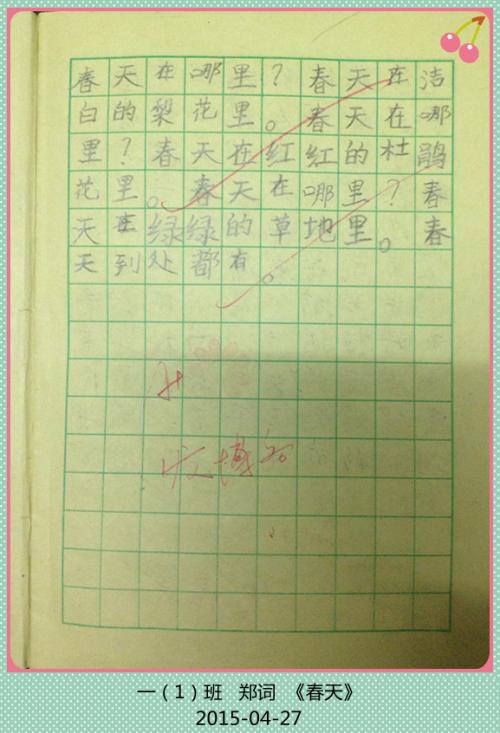 春天在哪里？春天在洁
白的梨花里。春天在哪
里？春天在红红的杜鹃
花里。春天在哪里？春
天在绿绿的草地里。春
天到处都有。
收博客
一（1）班 郑词 《春天》
2015-04-27